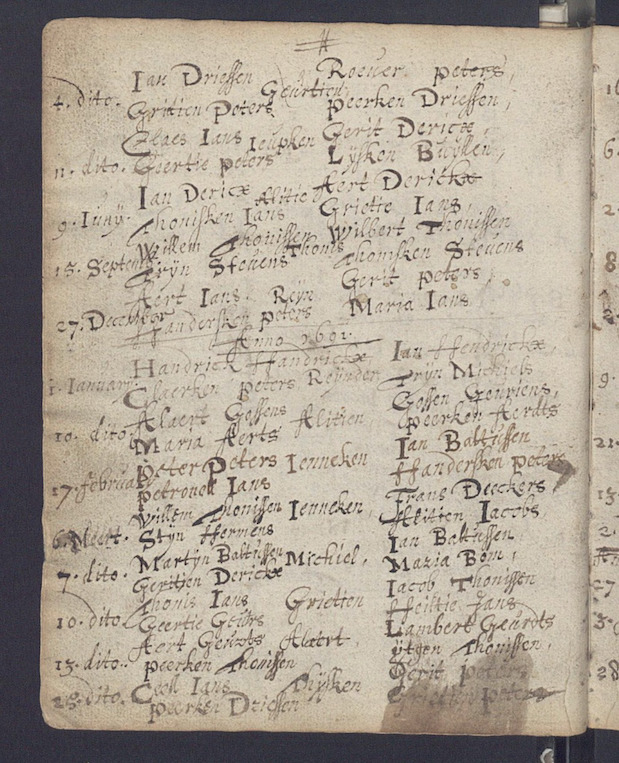 Ian Driessen Roeuer peters,
4. dito. Geurtien
Gritien Peters peerken Driessen,
Claes Ians Gerit Dericx,
11. dito. Geertie peters Ieupken Lysken Buyssen,
Ian Dericx Aert Derickx
9. Iuny. Thonisken Ians Alitie Grietie Ians,
Willem Thonissen Wilbert Thonissen
15. Septemb Tryn Steuens Thonis Thonisken Steuens
Aert Ians. Reyn Gerit peters
27. December ffandersken peters Maria Ians
Anno 1691.
Handrick ffandrickx Ian ffendrickx,
1. Ianuary. Claerken peters Reynder Tryn Michiels
Alaert Gossens Gossen Geuriens,
10. dito. Maria Aerts Alitien peerken Aerdts
peter Peters Ienneken Ian Baltussen
17. februar petronell Ians ffandersken peters
Willem Thonissen Ienneken, Frans Deeckers,
6. Meert. Styn Hermens Alitien Iacobs,
Martyn Baltussen Michiel, Ian Baltussen
7. dito. Geritien Derickx Maria Bom,
Thonis Ians Grietien Iacob Thonissen
10. dito Geertie Geurs Heiltie Jans
Aert Geurts Alaert, Lambert Geurdts
13. dito. peerken Thonissen ytgen Thonissen,
Ians Thysken Gerit peters
28. dito. peerken Driessen Grietien peters